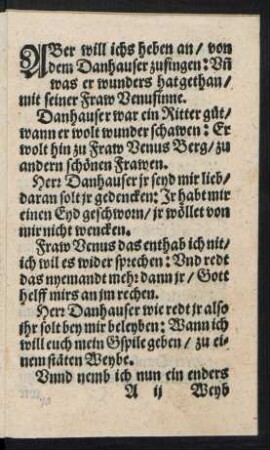 ABer will ichs heben an / von
dem Danhauser zusingen: Vñ
was er wunders hat gethan /
mit seiner Fraw Venusinne.
Danhauser war ein Ritter gůt /
wann er wolt wunder schawen: Er
wolt hin zu Fraw Venus Berg / zu
andern schönen Frawen.
Herr Danhauser jr seyd mir lieb /
daran solt jr gedencken: Jr habt mir
einen Eyd geschworn / jr wöllet von
mir nicht wencken.
Fraw Venus das enthab ich nit /
ich wil es wider sprechen: Vnd redt
das nyemandt mehr dann jr / Gott
helff mirs an jm rechen.
Herr Danhauser wie redt jr also
ihr solt bey mir beleyben: Wann ich
will euch mein Gspile geben / zu ei-
nem stäten Weybe.
Vnnd nemb ich nun ein enders
A ij Weyb